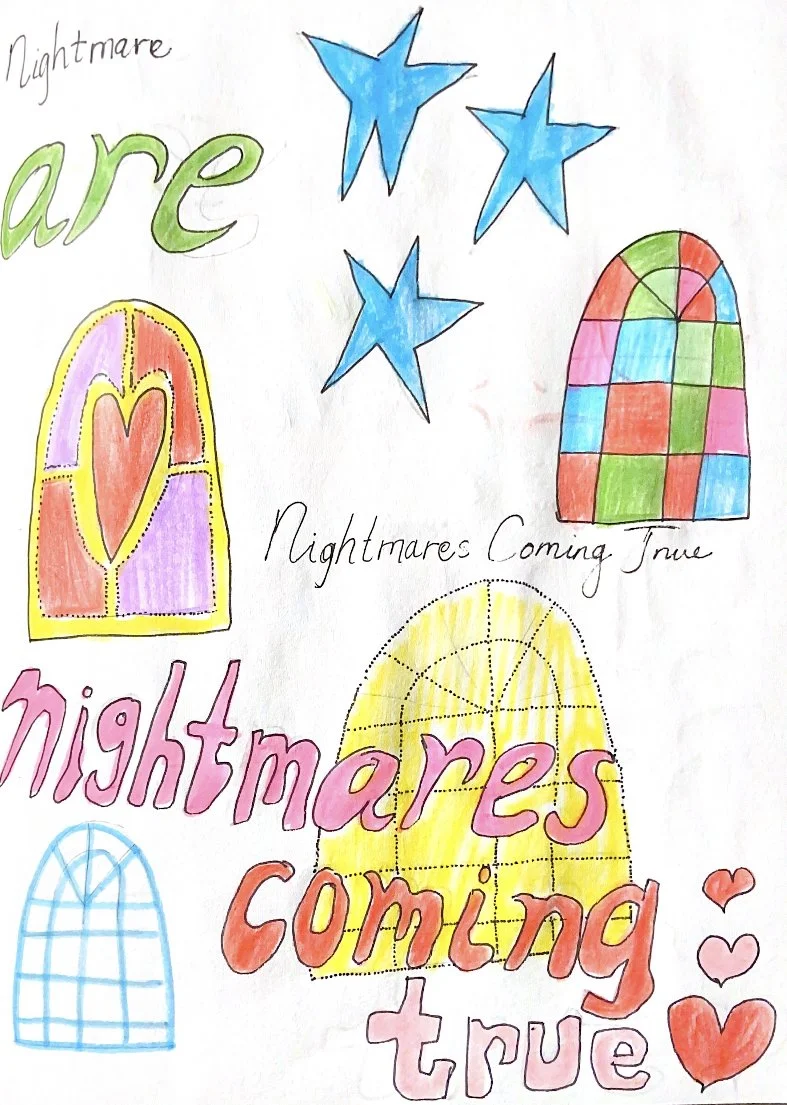 Nightmare
are
Nightmares Coming True
nightmares
coming
true